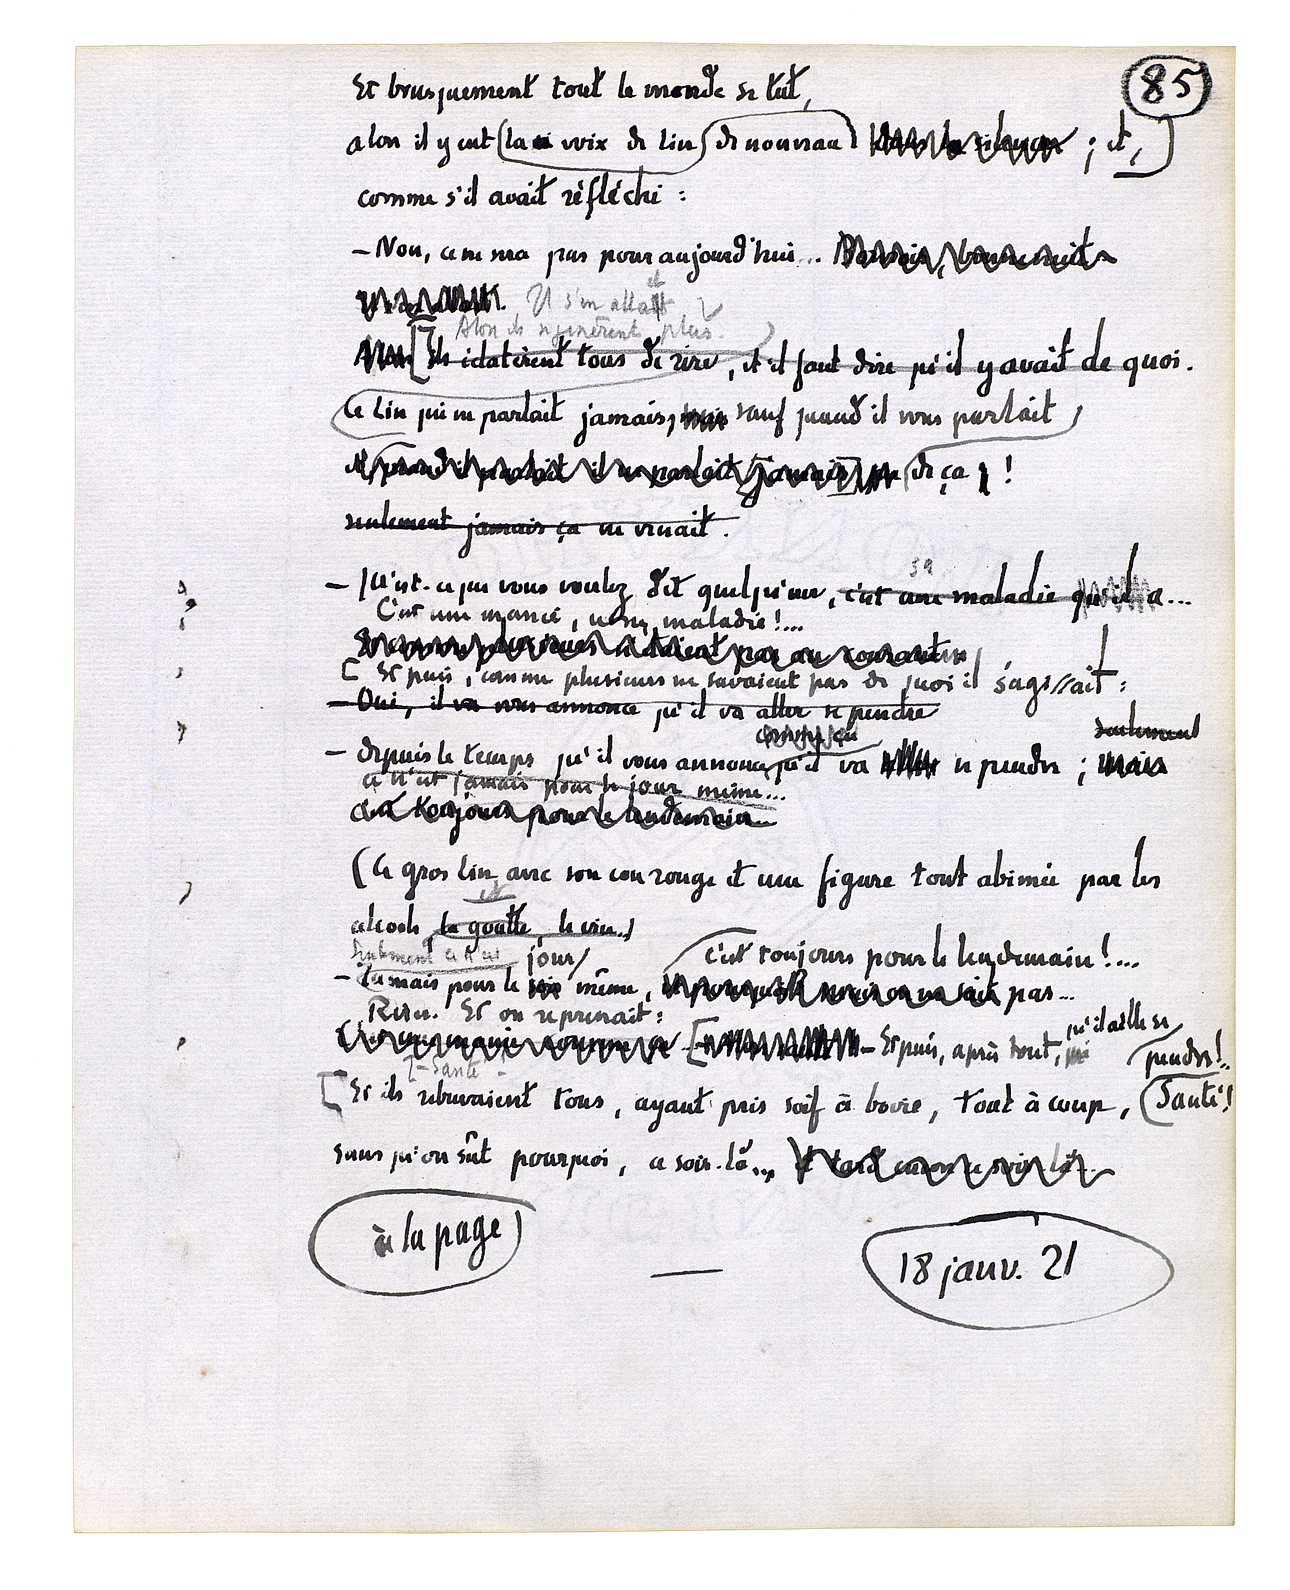 85
Et brusquement tout le monde se tut,
alors il y eut la voix de Lin de nouveau dans le silence ; et,
comme s'il avait réfléchi :
– Non, ce ne sera pas pour aujourd'hui... Bonsoir, bonne nuit
Il s'en allait. Il s'en allait et
Alors ils n'y tinrent plus.
Alors ils éclatèrent tous de rire, et il faut dire qu'il y avait de quoi.
Ce Lin qui ne parlait jamais, sauf quand il vous parlait
et quand il parlait il ne parlait jamais que de ça !
seulement jamais ça ne venait.
– Qu'est-ce que vous voulez, dit quelqu'un, c'est une maladie qu'il a...
C'est une manie, une maladie !...
Et comme plusieurs n'étaient pas au courant
Et puis, comme plusieurs ne savaient pas de quoi il s'agissait :
– Oui, il vous annonce qu'il va aller se pendre
comme ça seulement
– depuis le temps qu'il vous annonce qu'il va se pendre ; mais
ce n'est jamais pour le jour même...
c'est toujours pour le lendemain...
(Ce gros Lin, avec son cou rouge et une figure tout abîmée par les
alcools, la goutte, le vin..)
Seulement ce n'est jour c'est toujours pour le lendemain !...
– Jamais pour le même, et pourquoi ? on ne sait pas...
Rires. Et on reprenait :
C'est une manie comme ça – Et puis, après tout, qu'il aille se pendre !..
– Santé
Et ils rebuvaient tous, ayant pris soif à boire, tout à coup, Santé !
sans qu'on sût pourquoi, ce soir-là... et tard encore ce soir-là...
à la page
18 janv. 21